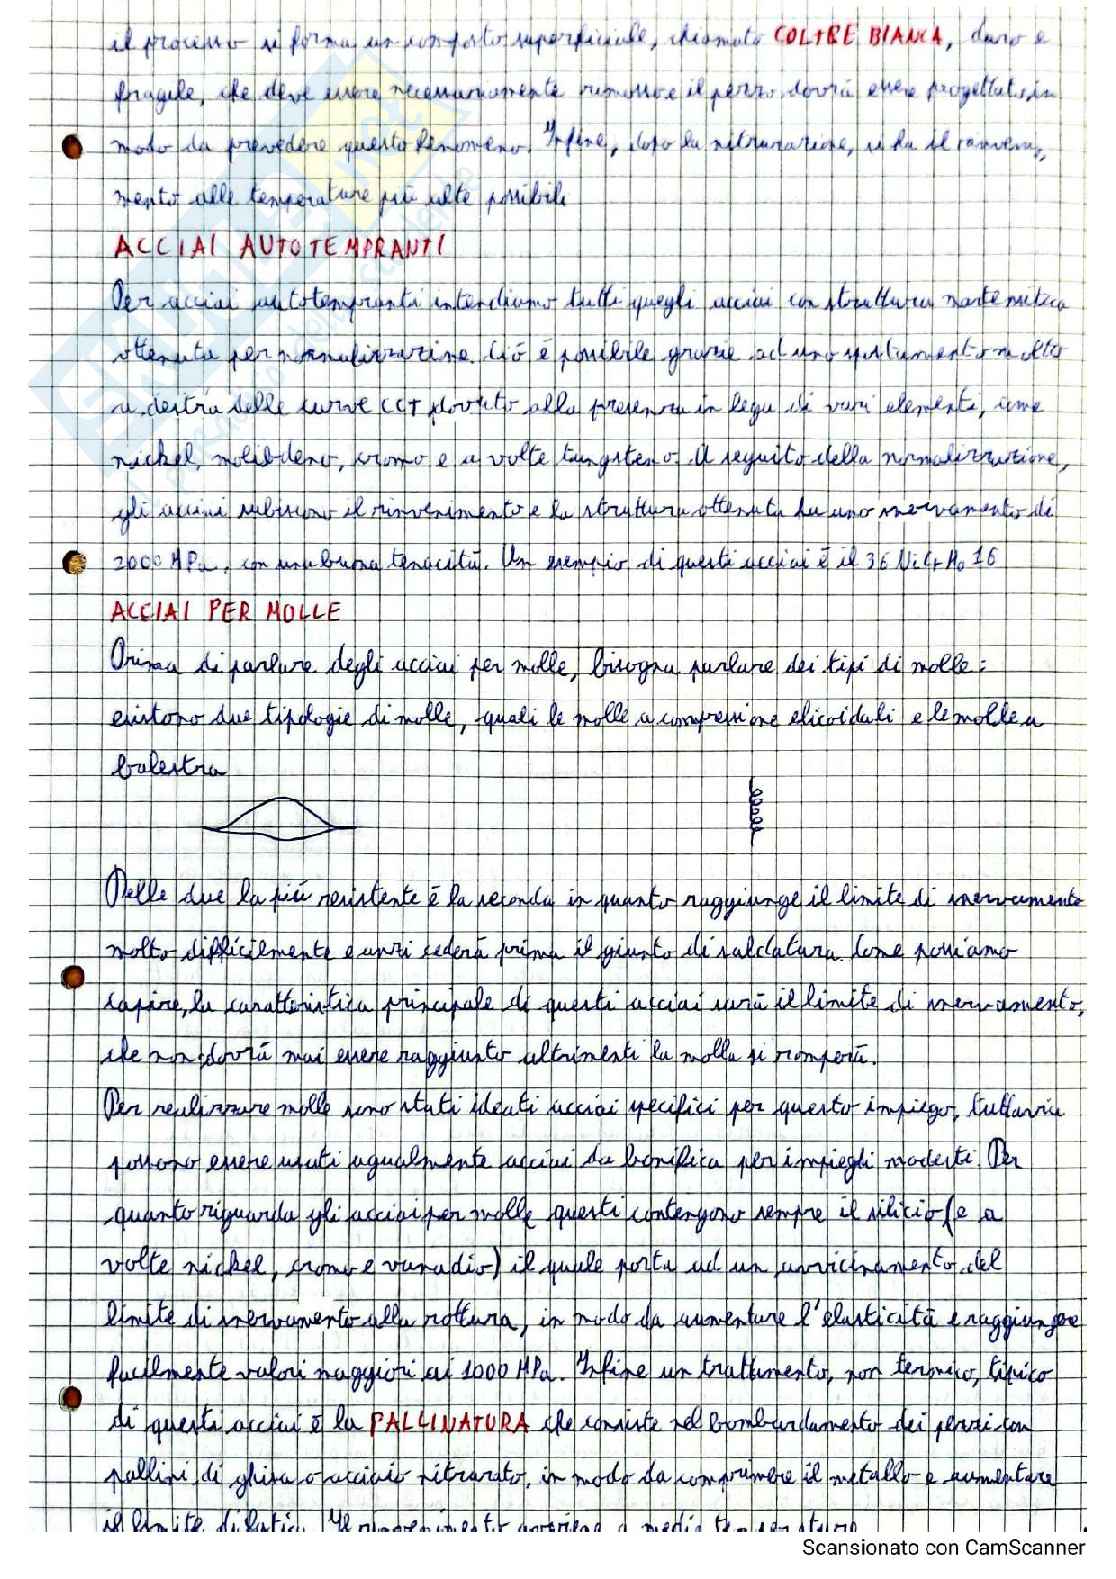 il processo si forma un composto superficiale, chiamato COLTRE BIANCA, duro e
fragile, che deve essere necessariamente rimosso e il pezzo dovrà essere progettato in
modo da prevedere questo fenomeno. Infine, dopo la nitrurazione, si ha il rinveni,
mento alle temperature più alte possibili
ACCIAI AUTOTEMPRANTI
Per acciai autotempranti intendiamo tutti quegli acciai con struttura martensitica
ottenuta per normalizzazione. Ciò è possibile grazie ad uno spostamento molto
a destra delle curve CCT dovuto alla presenza in lega di vari elementi, come
nickel, molibdeno, cromo e a volte tungsteno. A seguito della normalizzazione,
gli acciai subiscono il rinvenimento e la struttura ottenuta ha uno snervamento di
2000 MPa, con una buona tenacità. Un esempio di questi acciai è il 36 NiCrMo 16
ACCIAI PER MOLLE
Prima di parlare degli acciai per molle, bisogna parlare dei tipi di molle:
esistono due tipologie di molle, quali le molle a compressione elicoidali e le molle a
balestra
Delle due la più resistente è la seconda in quanto raggiunge il limite di snervamento
molto difficilmente e anzi cederà prima il giunto di saldatura. Come possiamo
capire, la caratteristica principale di questi acciai sarà il limite di snervamento,
che non dovrà mai essere raggiunto altrimenti la molla si romperà.
Per realizzare molle sono stati ideati acciai specifici per questo impiego, tuttavia
possono essere usati ugualmente acciai da bonifica per impieghi modesti. Per
quanto riguarda gli acciai per molle questi contengono sempre il silicio (e a
volte nickel, cromo e vanadio) il quale porta ad un avvicinamento del
limite di snervamento alla rottura, in modo da aumentare l'elasticità e raggiungere
facilmente valori maggiori ai 1000 MPa. Infine un trattamento, non termico, tipico
di questi acciai è la PALLINATURA che consiste nel bombardamento dei pezzi con
pallini di ghisa o acciaio nitrurato, in modo da comprimere il metallo e aumentare
il limite di fatica. Il rinvenimento avviene a medie temperature
Scansionato con CamScanner